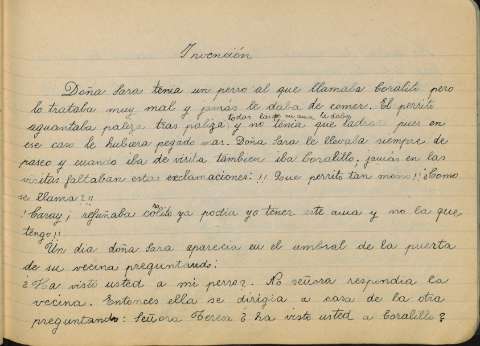 Invención
Doña Sara tenia un perro al que llamaba Coralito pero
lo trataba muy mal y jamás le daba de comer. El perrito
todas las que su ama le daba
aguantaba paliza tras paliza y no tenia que ladrar pues en
ese caso le hubiera pegado mas. Doña Sara le llevaba siempre de
paseo y cuando iba de visita tambien iba Coralillo, jamás en las
visitas faltaban estas exclamaciones: !! Que perrito tan mono!! ¿Como
se llama?!!
! Caray ¡ refuñaba ya podia yo tener este ama y no la que
tengo!!
Un dia doña Sara aparecia en el umbral de la puerta
de su vecina preguntando:
¿Ha visto usted a mi perro?. No señora respondia la
vecina. Entonces ella se dirigia a casa de la otra
preguntando: Señora Teresa ¿ ha visto usted a Coralillo?